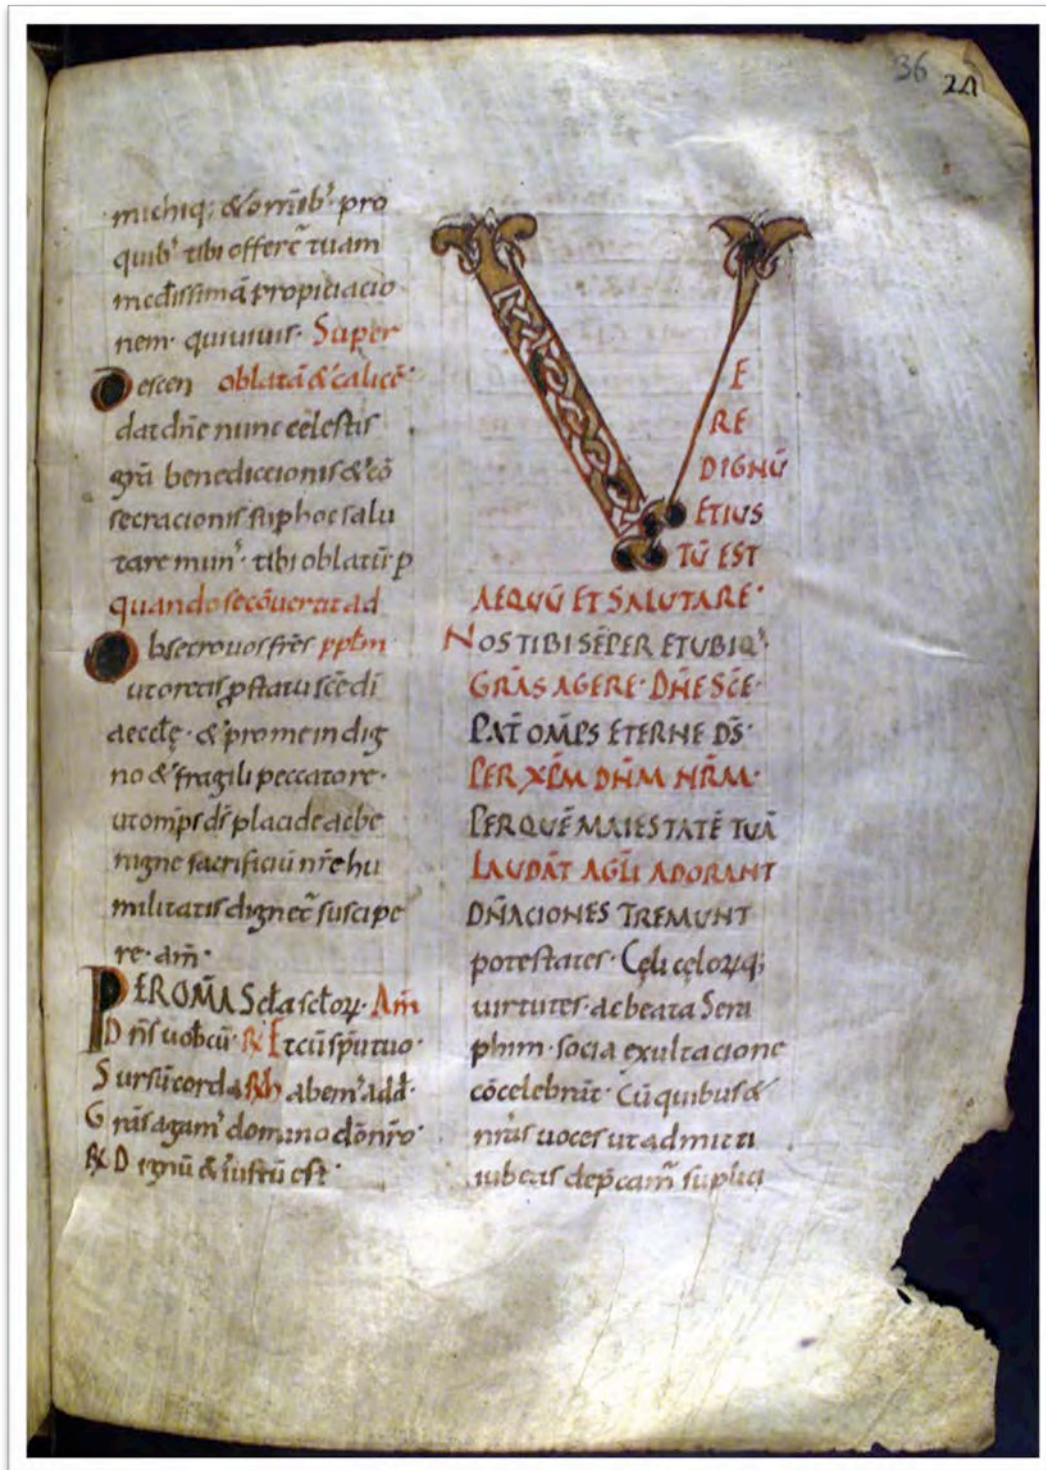 36
24
michiq; & om̄ib' pro
quib' tibi offer&̄ tuam
mediſſimā propiciacio
nem· quiuiuiſ· Super
Deſcen oblatā & calicē·
dat dn̄e nunc celeſtiſ
gr̄a benediccioniſ & cō
ſecracioniſ ſup hoc ſalu
tare mun'· tibi oblatū· p
quando ſe cōuertit ad
Obſecro uoſ fr̄eſ ppl̄m
ut oretiſ ꝓ ſtatu ſc̄e di
aeccl̄ę· & pro me indig
no & fragili peccatore·
ut omp̄ſ d̄ſ placide ac be
nigne ſacrificiū nr̄e hu
militatiſ dignet̄ ſuſcipe
re· am̄·
PER OM̄A Scl̄a ſcl̄oꝝ· Am̄
Dn̄ſ uobcū· ℟ Et cū ſpū tuo·
Surſū corda ℟ habem' add̄·
Gr̄aſ agam' domino dō nr̄o·
℟ Dignū & iuſtū eſt·
V
E
RE
DIGNŪ
ETIUS
TŪ EST
AEQUŪ ET SALUTARE·
NOS TIBI SĒPER ET UBIQ'·
GRĀS AGERE· DN̄E SC̄E·
PAT̄ OMP̄S ETERNE DS̄·
PER XP̄M DN̄M NR̄M·
PER QUĒ MAIESTATĒ TUĀ
LAUDĀT AGL̄I ADORANT
DN̄ACIONES TREMUNT
poteſtateſ· Cęli cęloꝝq;
uirtuteſ· ac beata Sera
phim· ſocia exultacione
cōcelebrāt· Cū quibuſ &
nr̄aſ uoceſ ut admitti
iubeaſ dep̄cam̄ ſuplici